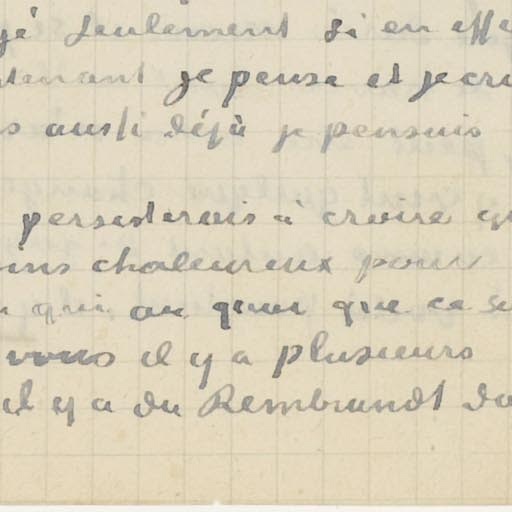 seulement si en
je pense et je
aussi déjà je pensais
persisterais à croire
chaleureux pour
qui ou quoi que ce
vous il y a plusieurs
il y a du Rembrandt